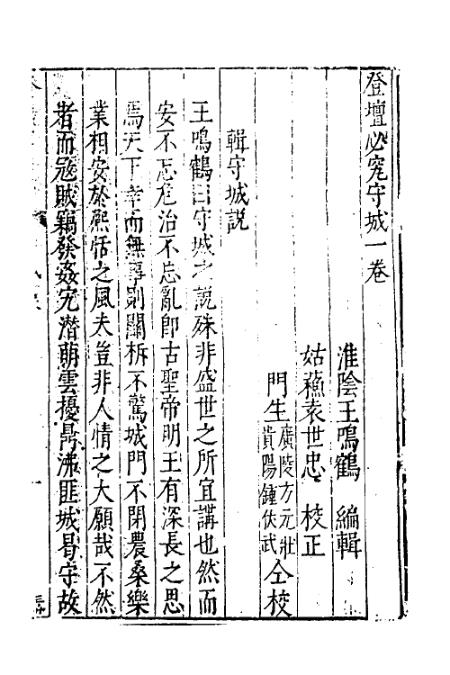 登壇必究守城一卷
淮陰王鳴鶴　編輯
姑蘓袁世忠　校正
門生廣陵方元壯貴陽鍾伏武仝校
輯守城説
王鳴鶴曰守城之説殊非盛世之所宜講也然而
安不忘危治不忘亂卽古聖帝明王有深長之思
焉天下幸而無事則關柝不驚城門不閉農桑樂
業相安於熈恬之風夫豈非人情之大願哉不然
者而寇賊竊發姦宄潜萌雲擾鼎沸匪城曷守故